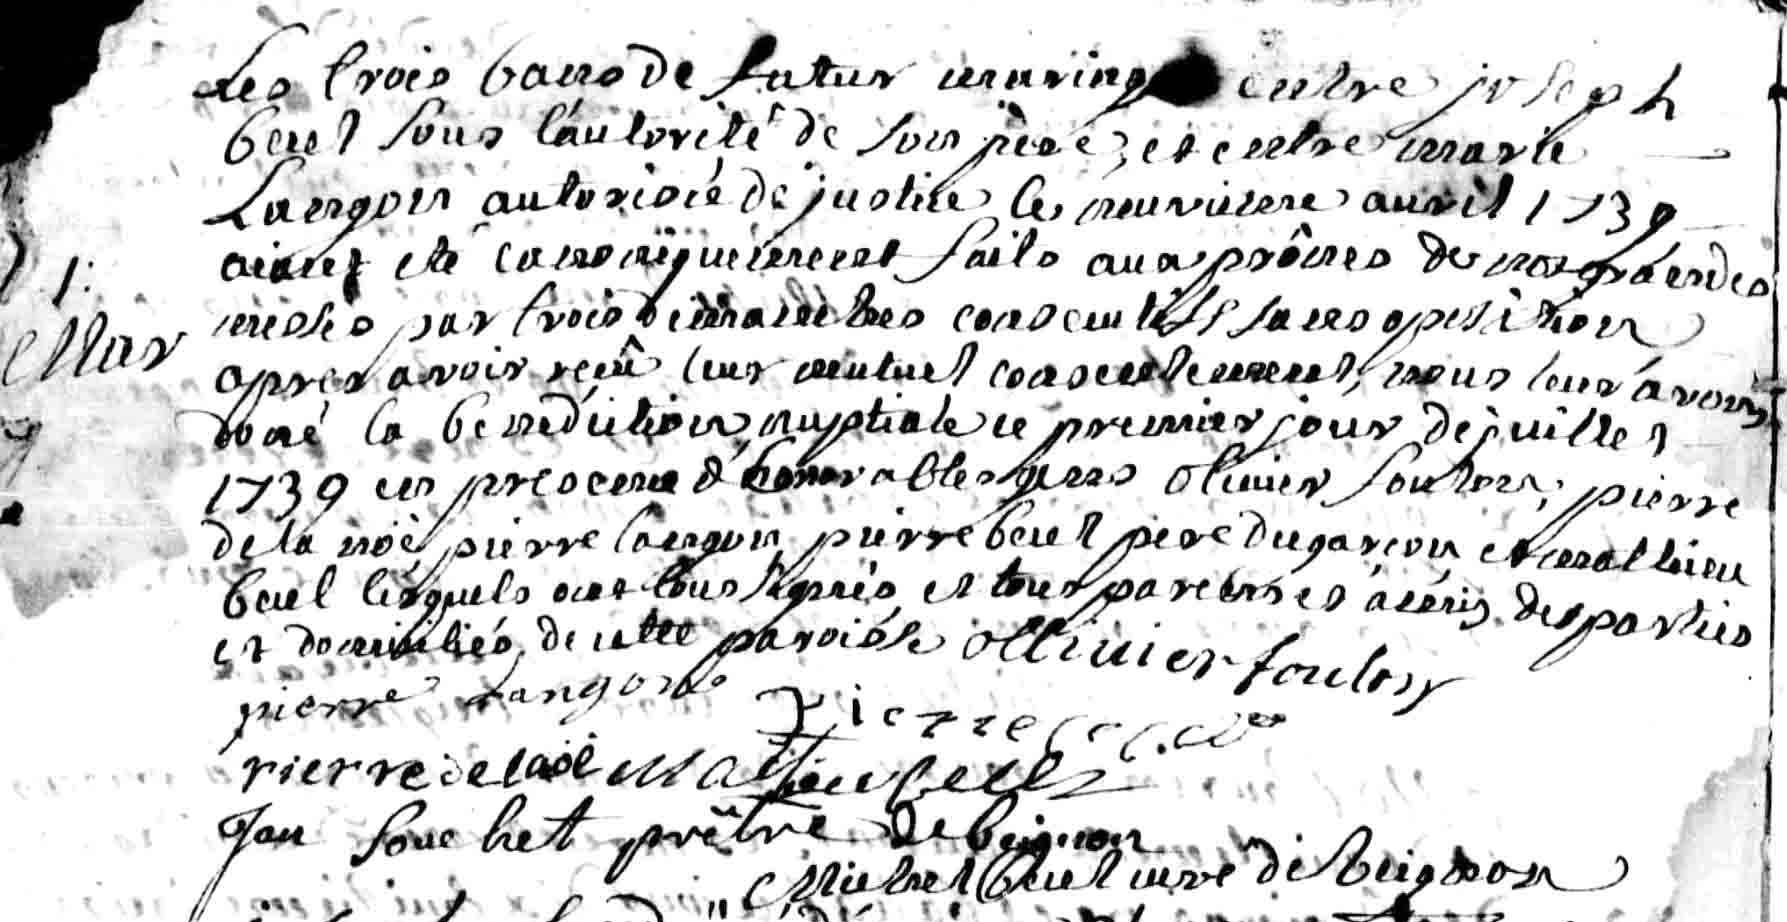 Les trois bans de futur mariage entre joseph
beul sous l'autorité de son père, et entre marie
Langon autorisiée de justice le neuvieme auvril 1739
aiant eté canoniquement faits aux prônes de nos grandes
messes par trois dimanches consecutifs sans oposition
apres avoir reçû leur mutuel consentement, nous leur avons
doné la benediction nuptiale ce premier jour de juillet
1739 en presence d'honorables gens olivier foulon, pierre
de la noë, pierre langon, pierre beul pere du garçon et mathieu
beul lesquels ont tous signés et tous parens et amis des parties
et domiciliés de cette paroisse ollivier foulon
pierre Langon
Pierre
Pierre de la noë Mathieu beul
Jan Souchet prêtre de beignon
Michel beul curé de beignon
1:
Mar